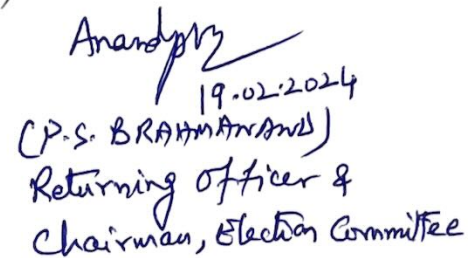 19.02.2024
(P.S. BRAHMANAND)
Returning Officer &
Chairman, Election Committee